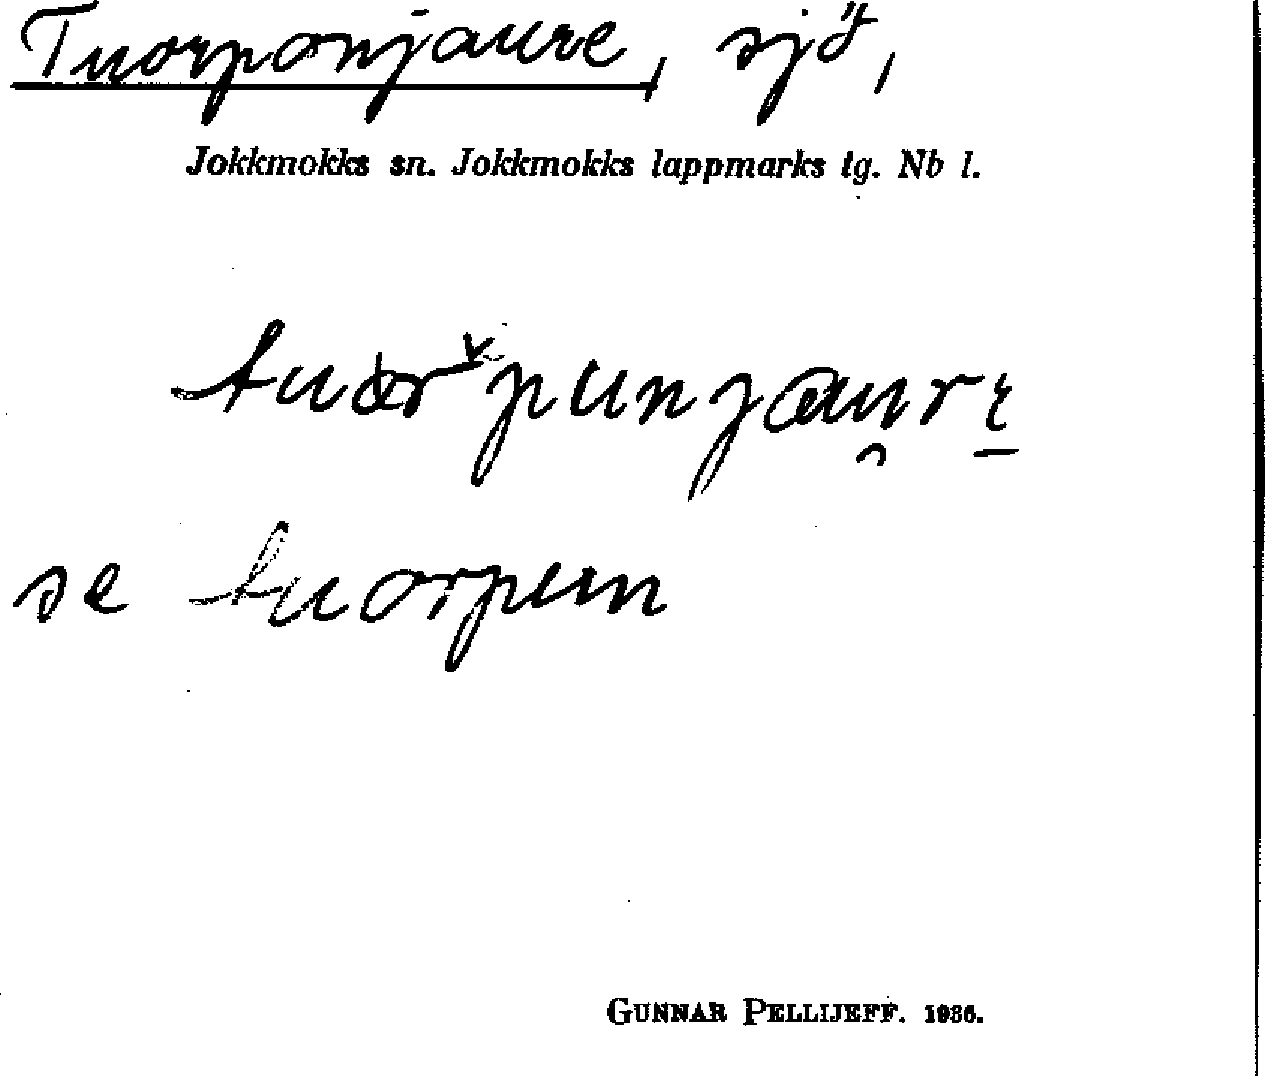 Tuorponjaure, sjö,
Jokkmokks sn. Jokkmokks lappmarks tg. Nb l.
se tuorpun
GUNNAR PELLIJEFF. 1936.